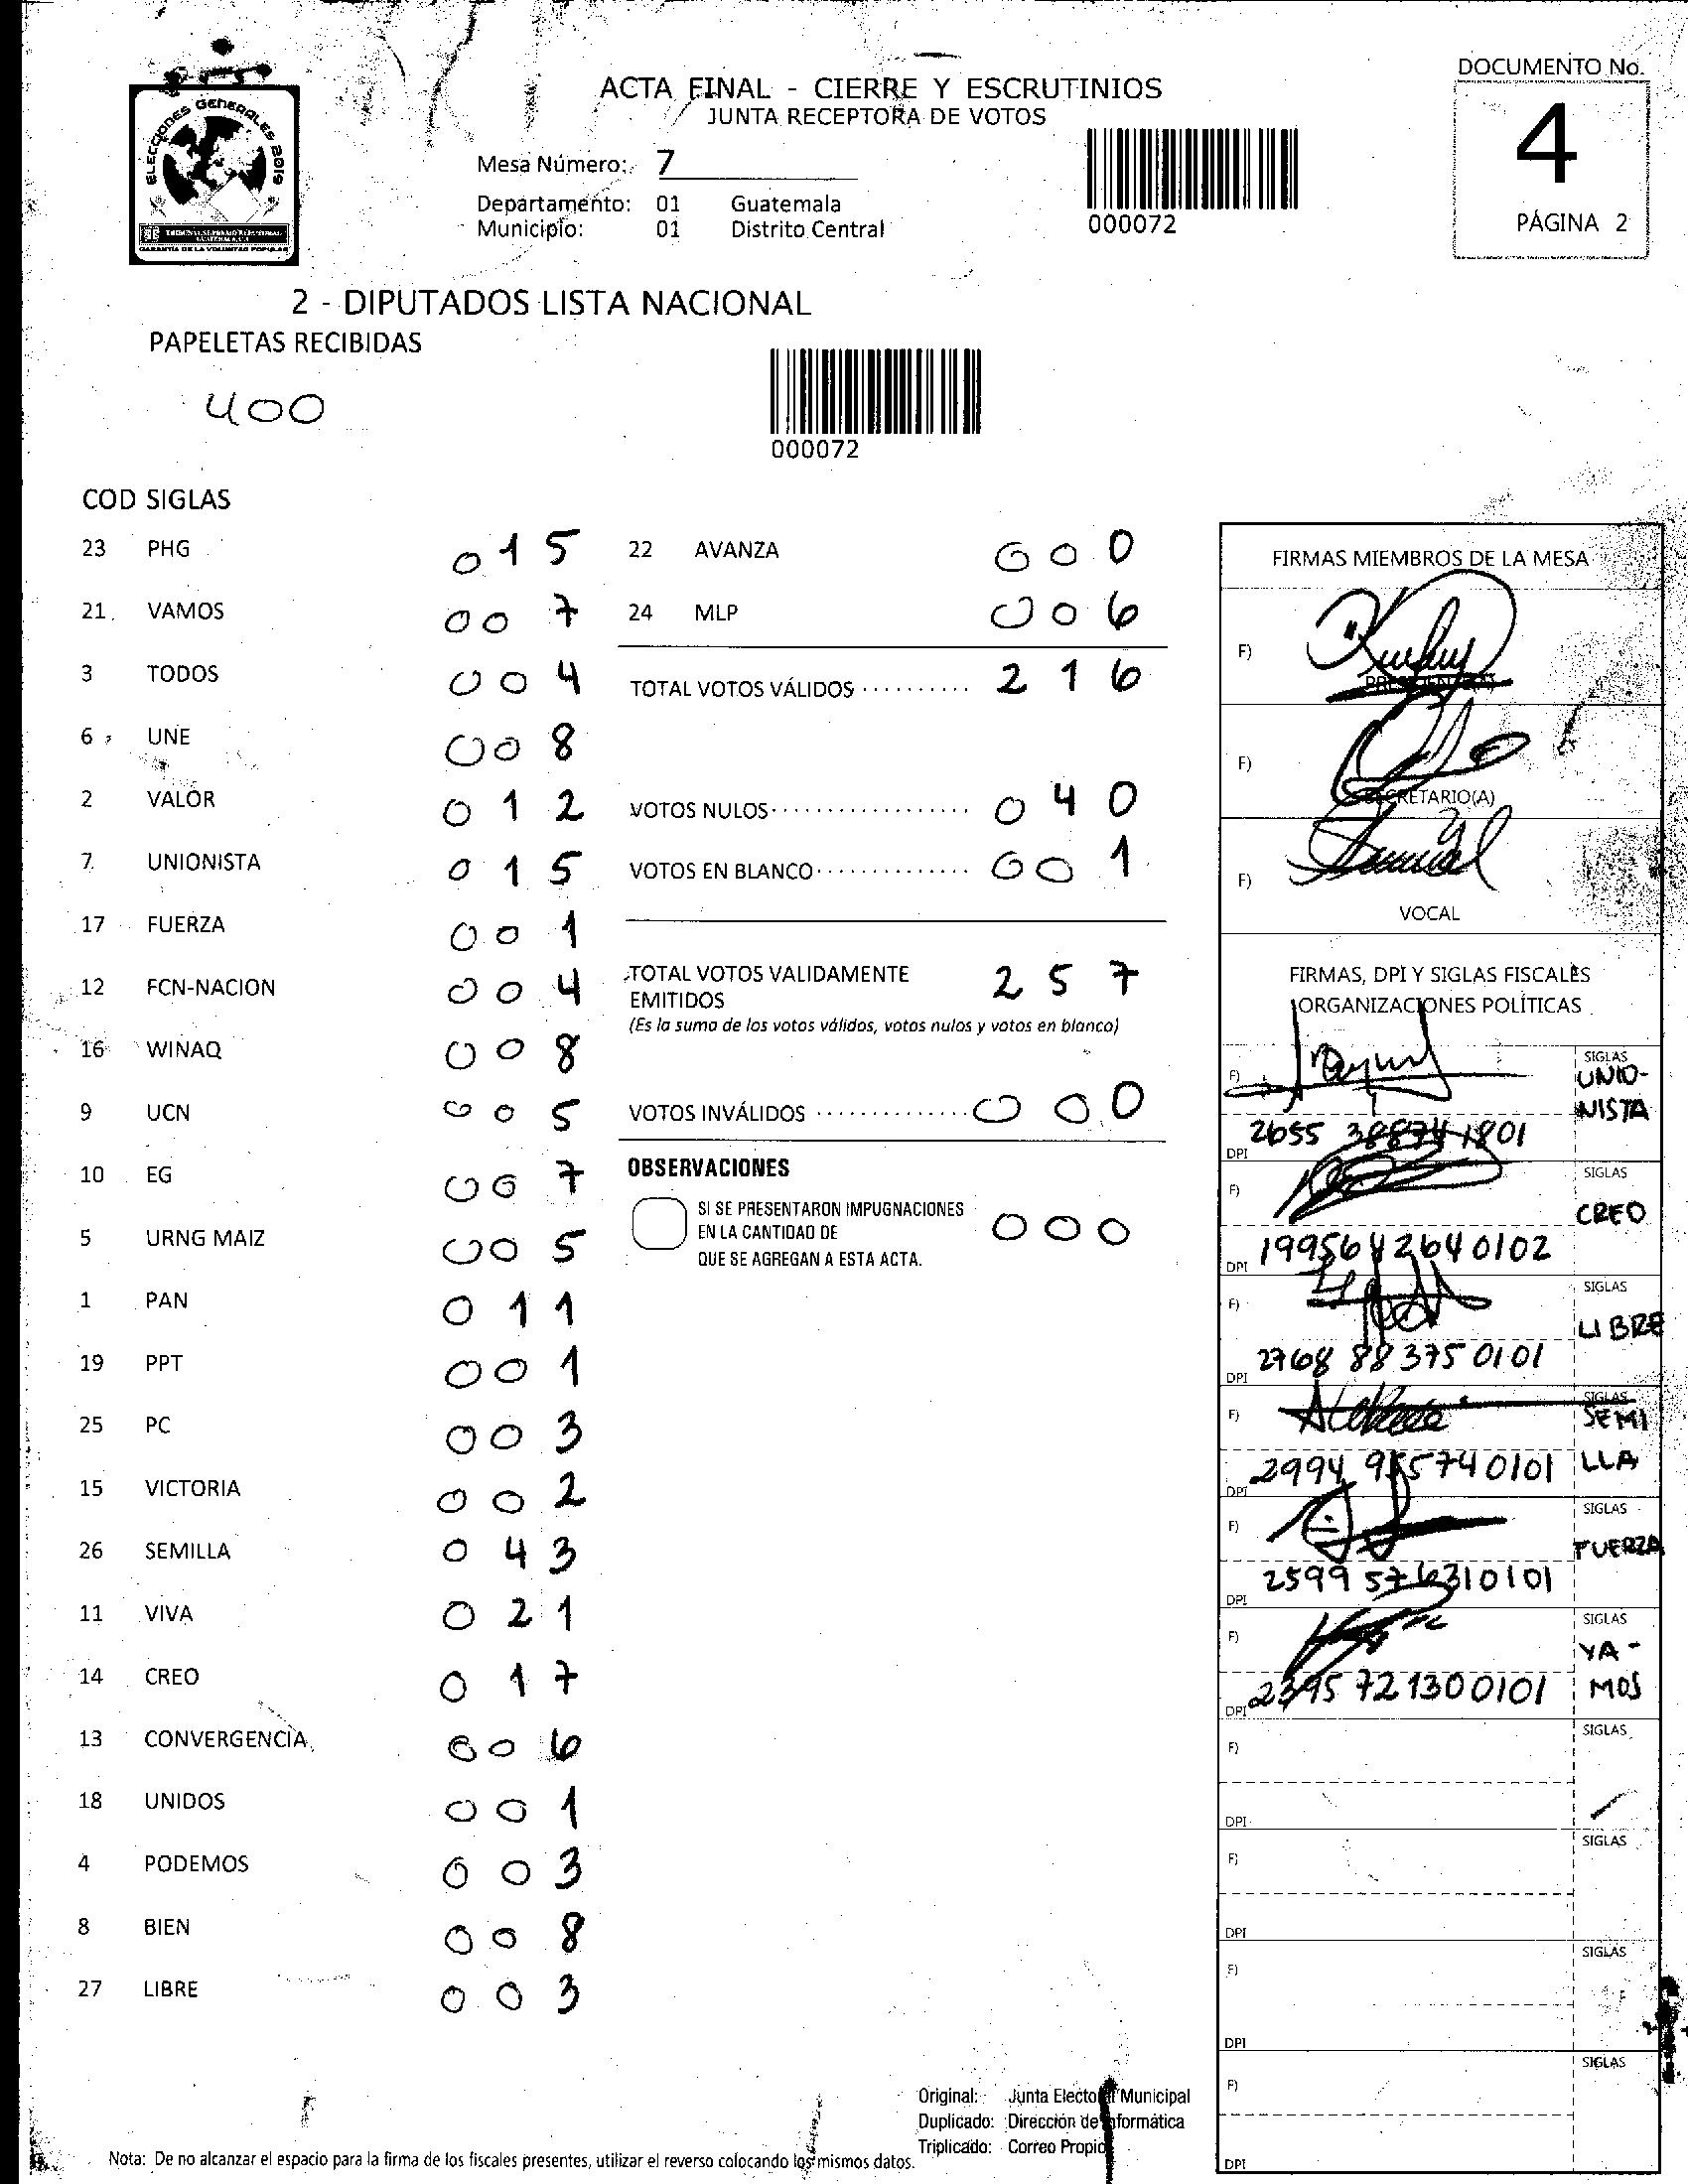 DOCUMENTO No.
4
PÁGINA 2
ELECCIONES GENERALES 2019
TRIBUNAL SUPREMO ELECTORAL
GUATEMALA, C.A.
GARANTÍA DE LA VOLUNTAD POPULAR
ACTA FINAL - CIERRE Y ESCRUTINIOS
JUNTA RECEPTORA DE VOTOS
Mesa Número: 7
Departamento: 01 Guatemala
Municipio: 01 Distrito Central
000072
2 - DIPUTADOS LISTA NACIONAL
PAPELETAS RECIBIDAS
400
000072
COD SIGLAS
23 PHG 015
21 VAMOS 007
3 TODOS 004
6 UNE 008
2 VALOR 012
7 UNIONISTA 015
17 FUERZA 001
12 FCN-NACION 004
16 WINAQ 008
9 UCN 005
10 EG 007
5 URNG MAIZ 005
1 PAN 011
19 PPT 001
25 PC 003
15 VICTORIA 002
26 SEMILLA 043
11 VIVA 021
14 CREO 017
13 CONVERGENCIA 006
18 UNIDOS 001
4 PODEMOS 003
8 BIEN 008
27 LIBRE 003
22 AVANZA 000
24 MLP 006
TOTAL VOTOS VÁLIDOS .......... 216
VOTOS NULOS.................. 040
VOTOS EN BLANCO.............. 001
TOTAL VOTOS VALIDAMENTE 257
EMITIDOS
(Es la suma de los votos válidos, votos nulos y votos en blanco)
VOTOS INVÁLIDOS ............. 000
OBSERVACIONES
SI SE PRESENTARON IMPUGNACIONES
EN LA CANTIDAD DE 000
QUE SE AGREGAN A ESTA ACTA.
FIRMAS MIEMBROS DE LA MESA
F)
PRESIDENTE(A)
F)
SECRETARIO(A)
F)
VOCAL
FIRMAS, DPI Y SIGLAS FISCALES
ORGANIZACIONES POLÍTICAS
F) SIGLAS
UNIO-
NISTA
DPI 2655 38874 1801
F) SIGLAS
CREO
DPI 1995642640102
F) SIGLAS
LIBRE
DPI 2768 88375 0101
F) SIGLAS
SEMI
LLA
DPI 2994 955740101
F) SIGLAS
FUERZA
DPI 2599 576310101
F) SIGLAS
VA-
MOS
DPI 2395 721300101
F) SIGLAS
DPI
F) SIGLAS
DPI
F) SIGLAS
DPI
F) SIGLAS
DPI
Original: Junta Electoral Municipal
Duplicado: Dirección de Informática
Triplicado: Correo Propio
Nota: De no alcanzar el espacio para la firma de los fiscales presentes, utilizar el reverso colocando los mismos datos.